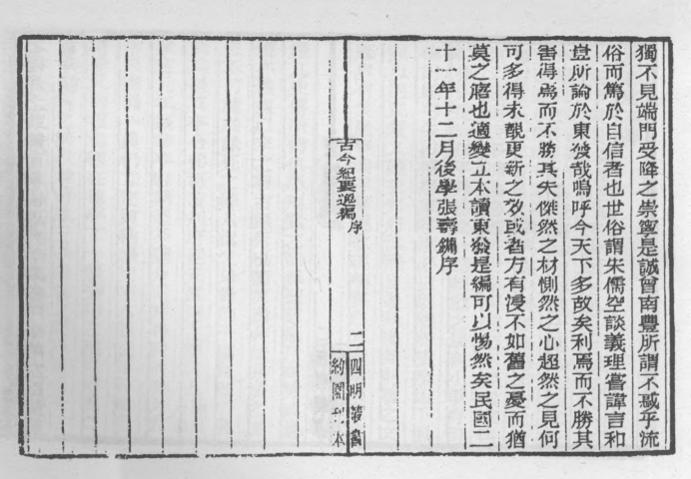 獨不見端門受降之崇寧是誠曾南豐所謂不惑乎流
俗而篤於自信者也世俗謂宋儒空談義理嘗諱言和
豈所論於東發哉嗚呼今天下多故矣利焉而不勝其
害得焉而不勝其失傑然之材惻然之心超然之見何
可多得未覩更新之效或者方有浸不如舊之憂而猶
莫之寤也適變立本讀東發是編可以惕然矣民國二
十一年十二月後學張壽鏞序
古今紀要逸編 序
二
四明叢書
約園刊本